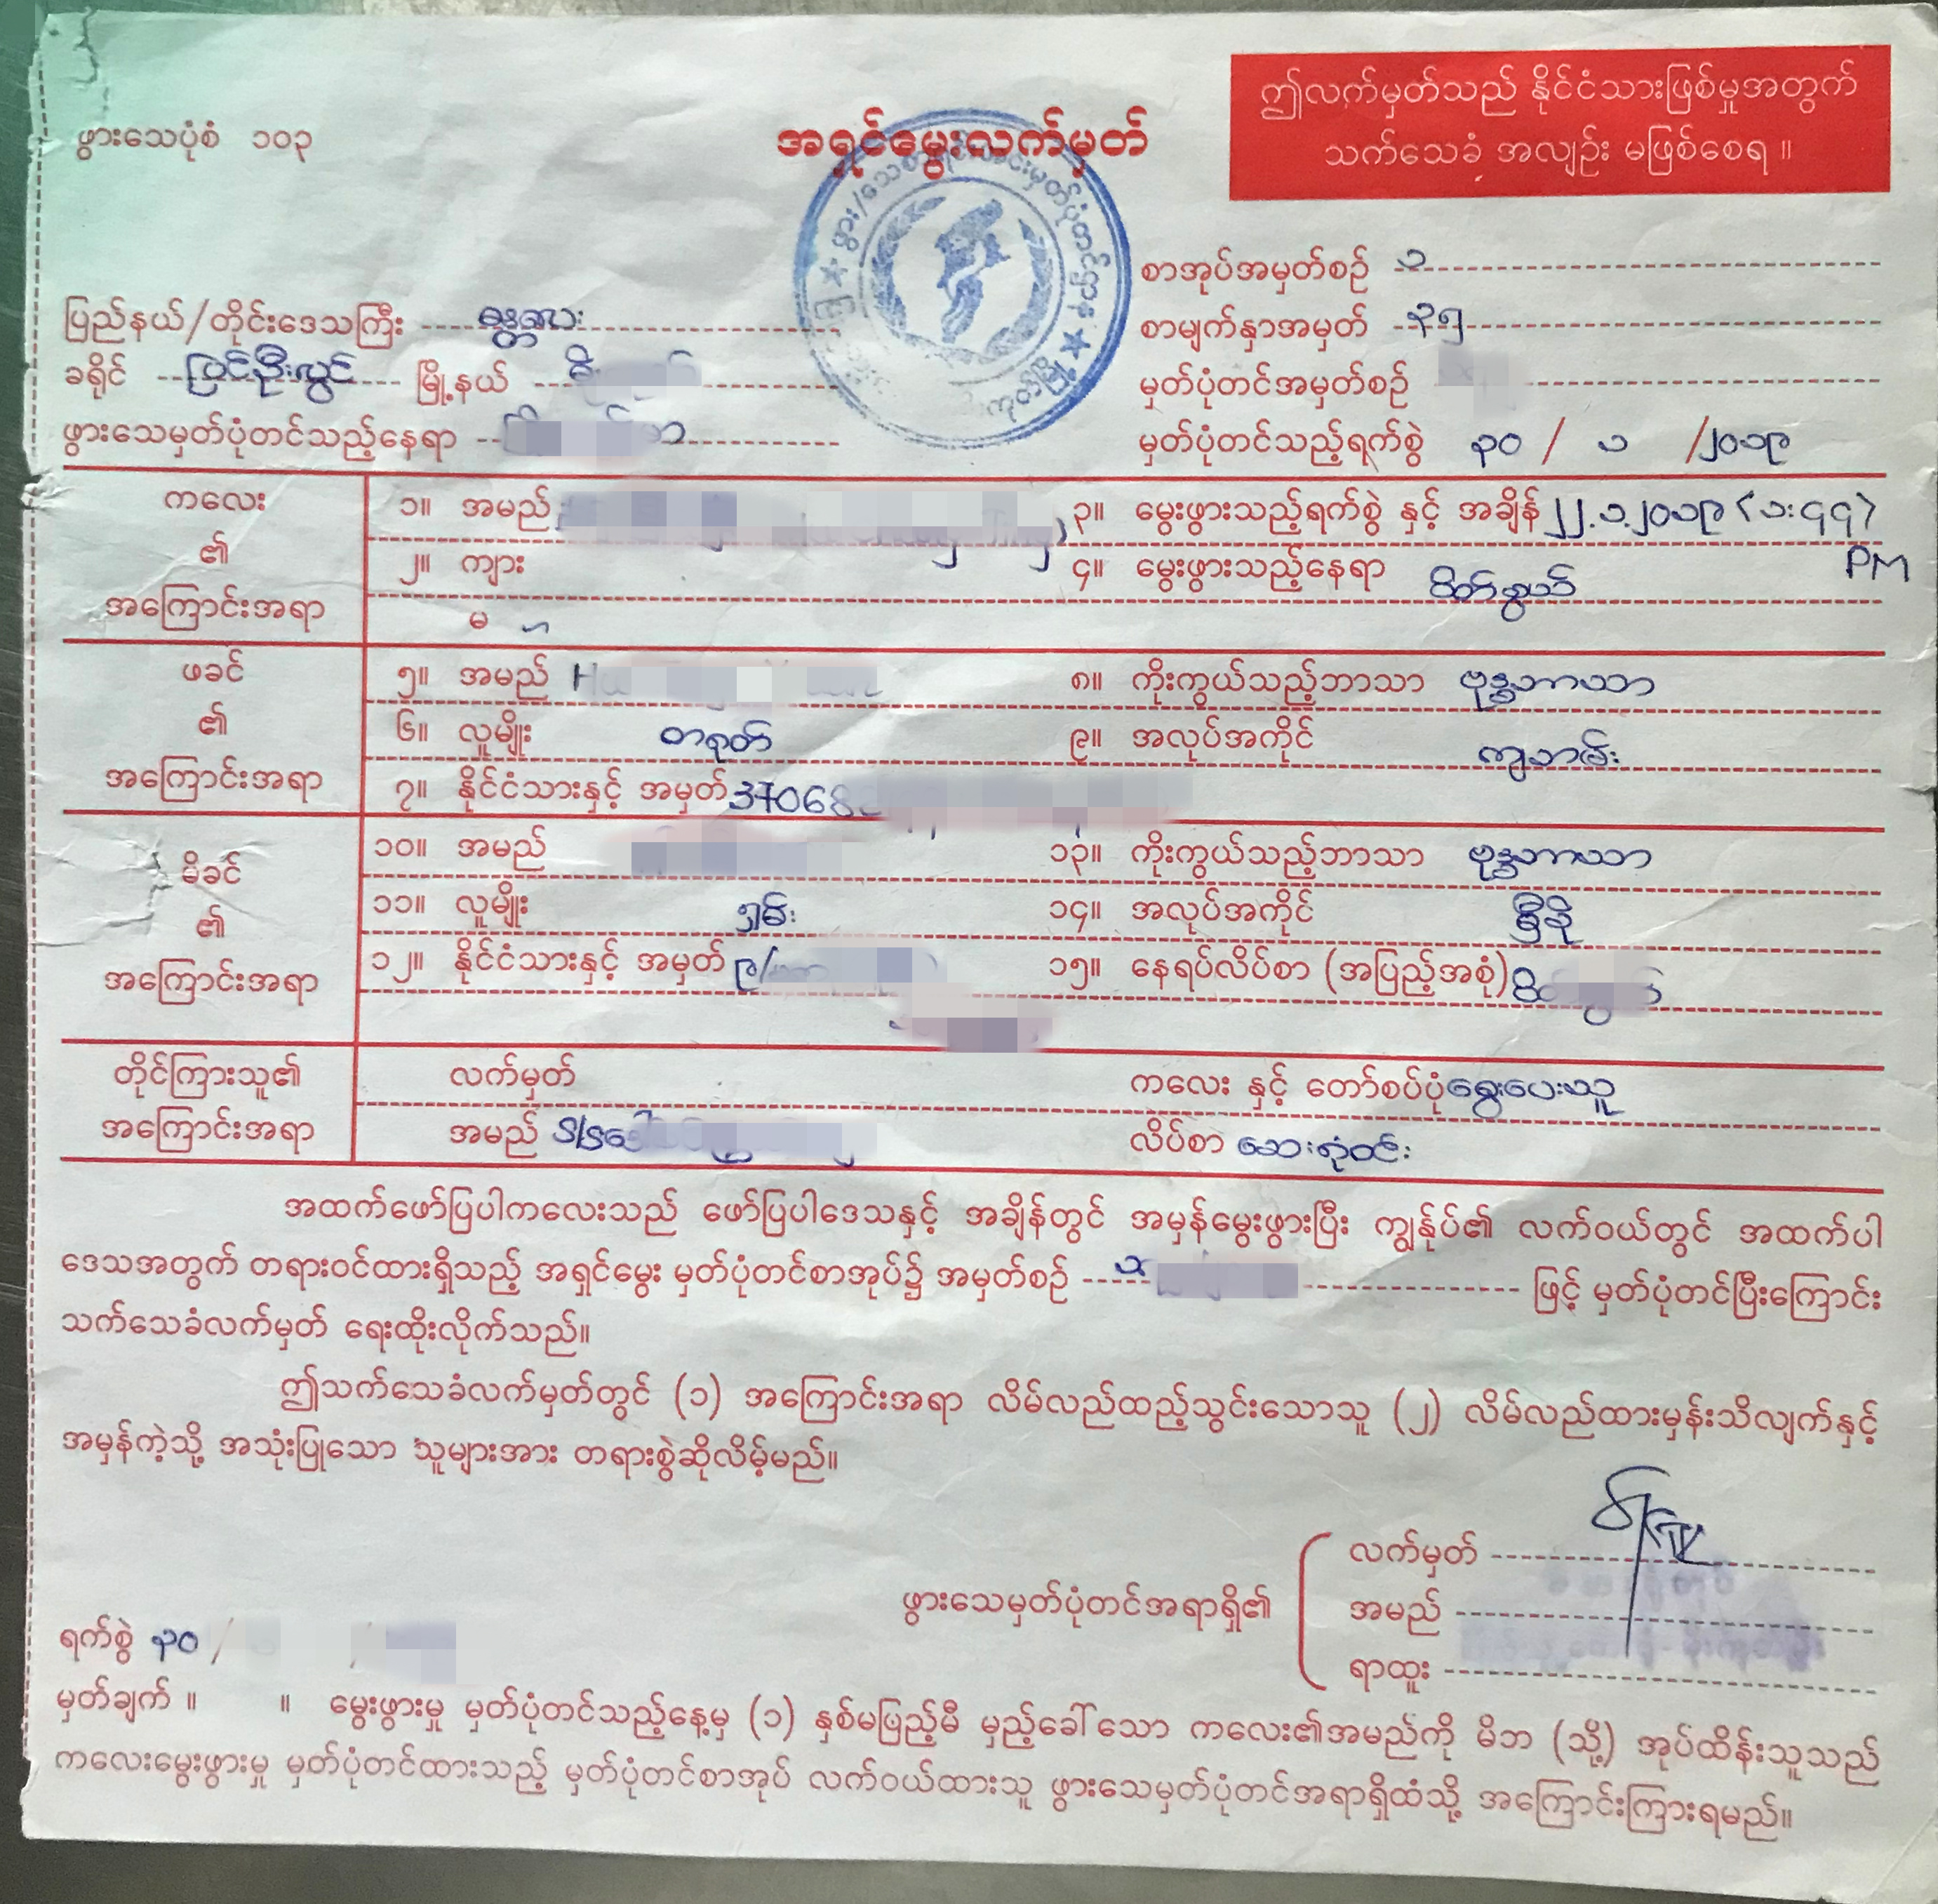 ဤလက်မှတ်သည် နိုင်ငံသားဖြစ်မှုအတွက်
သက်သေခံ အလျဉ်း မဖြစ်စေရ ။
ဖွားသေပုံစံ ၁၀၃
အရင်မွေးလက်မှတ်
စာအုပ်အမှတ်စဉ် ၁
ပြည်နယ်/တိုင်းဒေသကြီး မန္တလေး
စာမျက်နှာအမှတ် ၃၅
ခရိုင် ပြင်ဦးလွင် မြို့နယ်
မှတ်ပုံတင်အမှတ်စဉ်
ဖွားသေမှတ်ပုံတင်သည့်နေရာ
မှတ်ပုံတင်သည့်ရက်စွဲ ၃၀ / ၁ /၂၀၁၉
ကလေး ၏ အကြောင်းအရာ
၁။ အမည်
၃။ မွေးဖွားသည့်ရက်စွဲ နှင့် အချိန် ၂၂.၁.၂၀၁၉ (၁:၄၄) PM
၂။ ကျား
၄။ မွေးဖွားသည့်နေရာ
မ
ဖခင် ၏ အကြောင်းအရာ
၅။ အမည်
၈။ ကိုးကွယ်သည့်ဘာသာ ဗုဒ္ဓဘာသာ
၆။ လူမျိုး တရုတ်
၉။ အလုပ်အကိုင် ကျဘမ်း
၇။ နိုင်ငံသားနှင့် အမှတ် 37068
မိခင် ၏ အကြောင်းအရာ
၁၀။ အမည်
၁၃။ ကိုးကွယ်သည့်ဘာသာ ဗုဒ္ဓဘာသာ
၁၁။ လူမျိုး ရှမ်း
၁၄။ အလုပ်အကိုင် မှီခို
၁၂။ နိုင်ငံသားနှင့် အမှတ် ၉/
၁၅။ နေရပ်လိပ်စာ (အပြည့်အစုံ)
တိုင်ကြားသူ၏ အကြောင်းအရာ
လက်မှတ်
ကလေး နှင့် တော်စပ်ပုံ မွေးပေးသူ
အမည်
လိပ်စာ ဆေးရုံဝင်း
အထက်ဖော်ပြပါကလေးသည် ဖော်ပြပါဒေသနှင့် အချိန်တွင် အမှန်မွေးဖွားပြီး ကျွန်ုပ်၏ လက်ဝယ်တွင် အထက်ပါ
ဒေသအတွက် တရားဝင်ထားရှိသည့် အရှင်မွေး မှတ်ပုံတင်စာအုပ်၌ အမှတ်စဉ် ဖြင့် မှတ်ပုံတင်ပြီးကြောင်း
သက်သေခံလက်မှတ် ရေးထိုးလိုက်သည်။
ဤသက်သေခံလက်မှတ်တွင် (၁) အကြောင်းအရာ လိမ်လည်ထည့်သွင်းသောသူ (၂) လိမ်လည်ထားမှန်းသိလျက်နှင့်
အမှန်ကဲ့သို့ အသုံးပြုသော သူများအား တရားစွဲဆိုလိမ့်မည်။
လက်မှတ်
ဖွားသေမှတ်ပုံတင်အရာရှိ၏ အမည်
ရာထူး
ရက်စွဲ ၃၀ /
မှတ်ချက် ။ ။ မွေးဖွားမှု မှတ်ပုံတင်သည့်နေ့မှ (၁) နှစ်မပြည့်မီ မှည့်ခေါ်သော ကလေး၏အမည်ကို မိဘ (သို့) အုပ်ထိန်းသူသည်
ကလေးမွေးဖွားမှု မှတ်ပုံတင်ထားသည့် မှတ်ပုံတင်စာအုပ် လက်ဝယ်ထားသူ ဖွားသေမှတ်ပုံတင်အရာရှိထံသို့ အကြောင်းကြားရမည်။